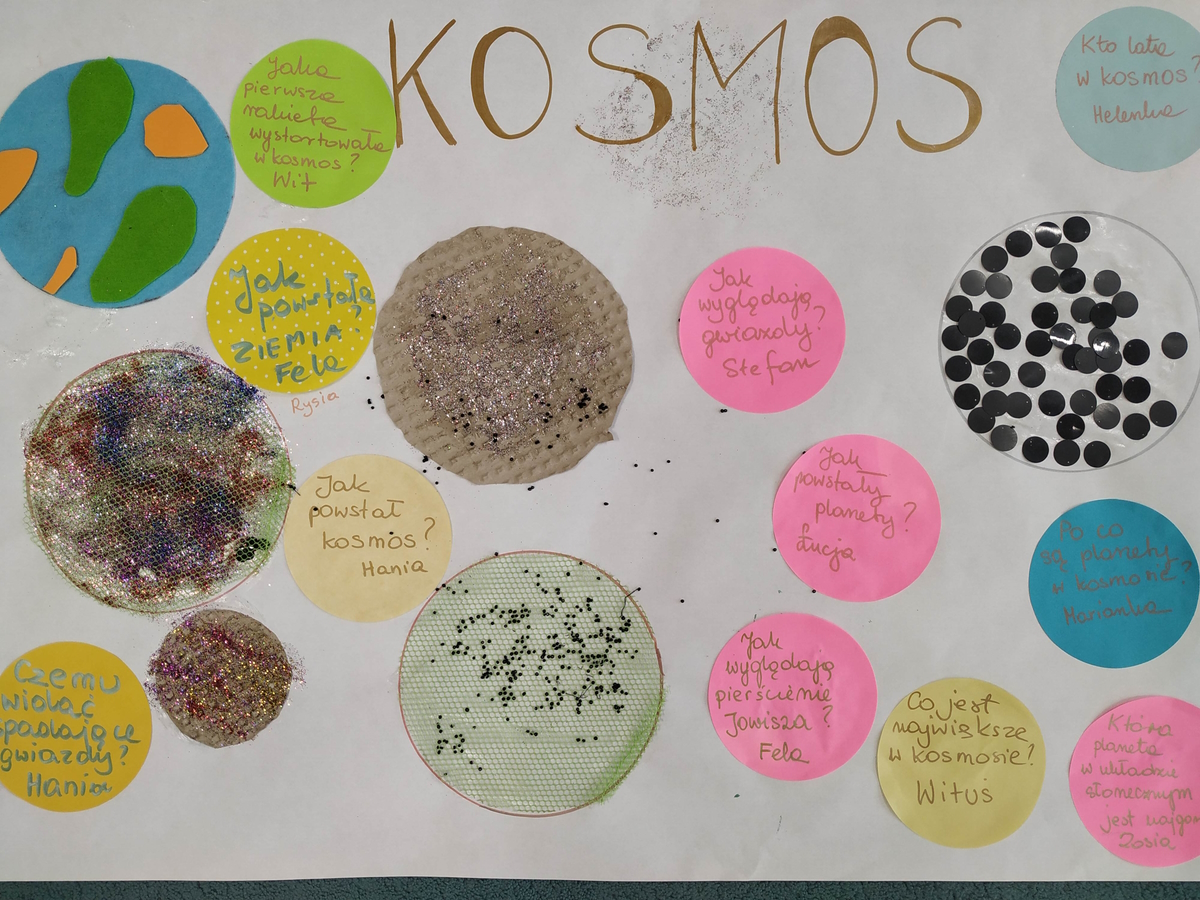 KOSMOS
Jaka
pierwsza
rakieta
wystartowała
w kosmos?
Wit
Kto lata
w kosmos?
Helenka
Jak
powstała
ZIEMIA?
Fela
Rysia
Jak
wyglądają
gwiazdy?
Stefan
Jak
powstał
kosmos?
Hania
Jak
powstały
planety?
Łucja
Po co
są planety
w kosmosie?
Marianka
Czemu
widać
spadające
gwiazdy?
Hania
Jak
wyglądają
pierścienie
Jowisza?
Fela
Co jest
największe
w kosmosie?
Wituś
Która
planeta
w układzie
słonecznym
jest
Zosia